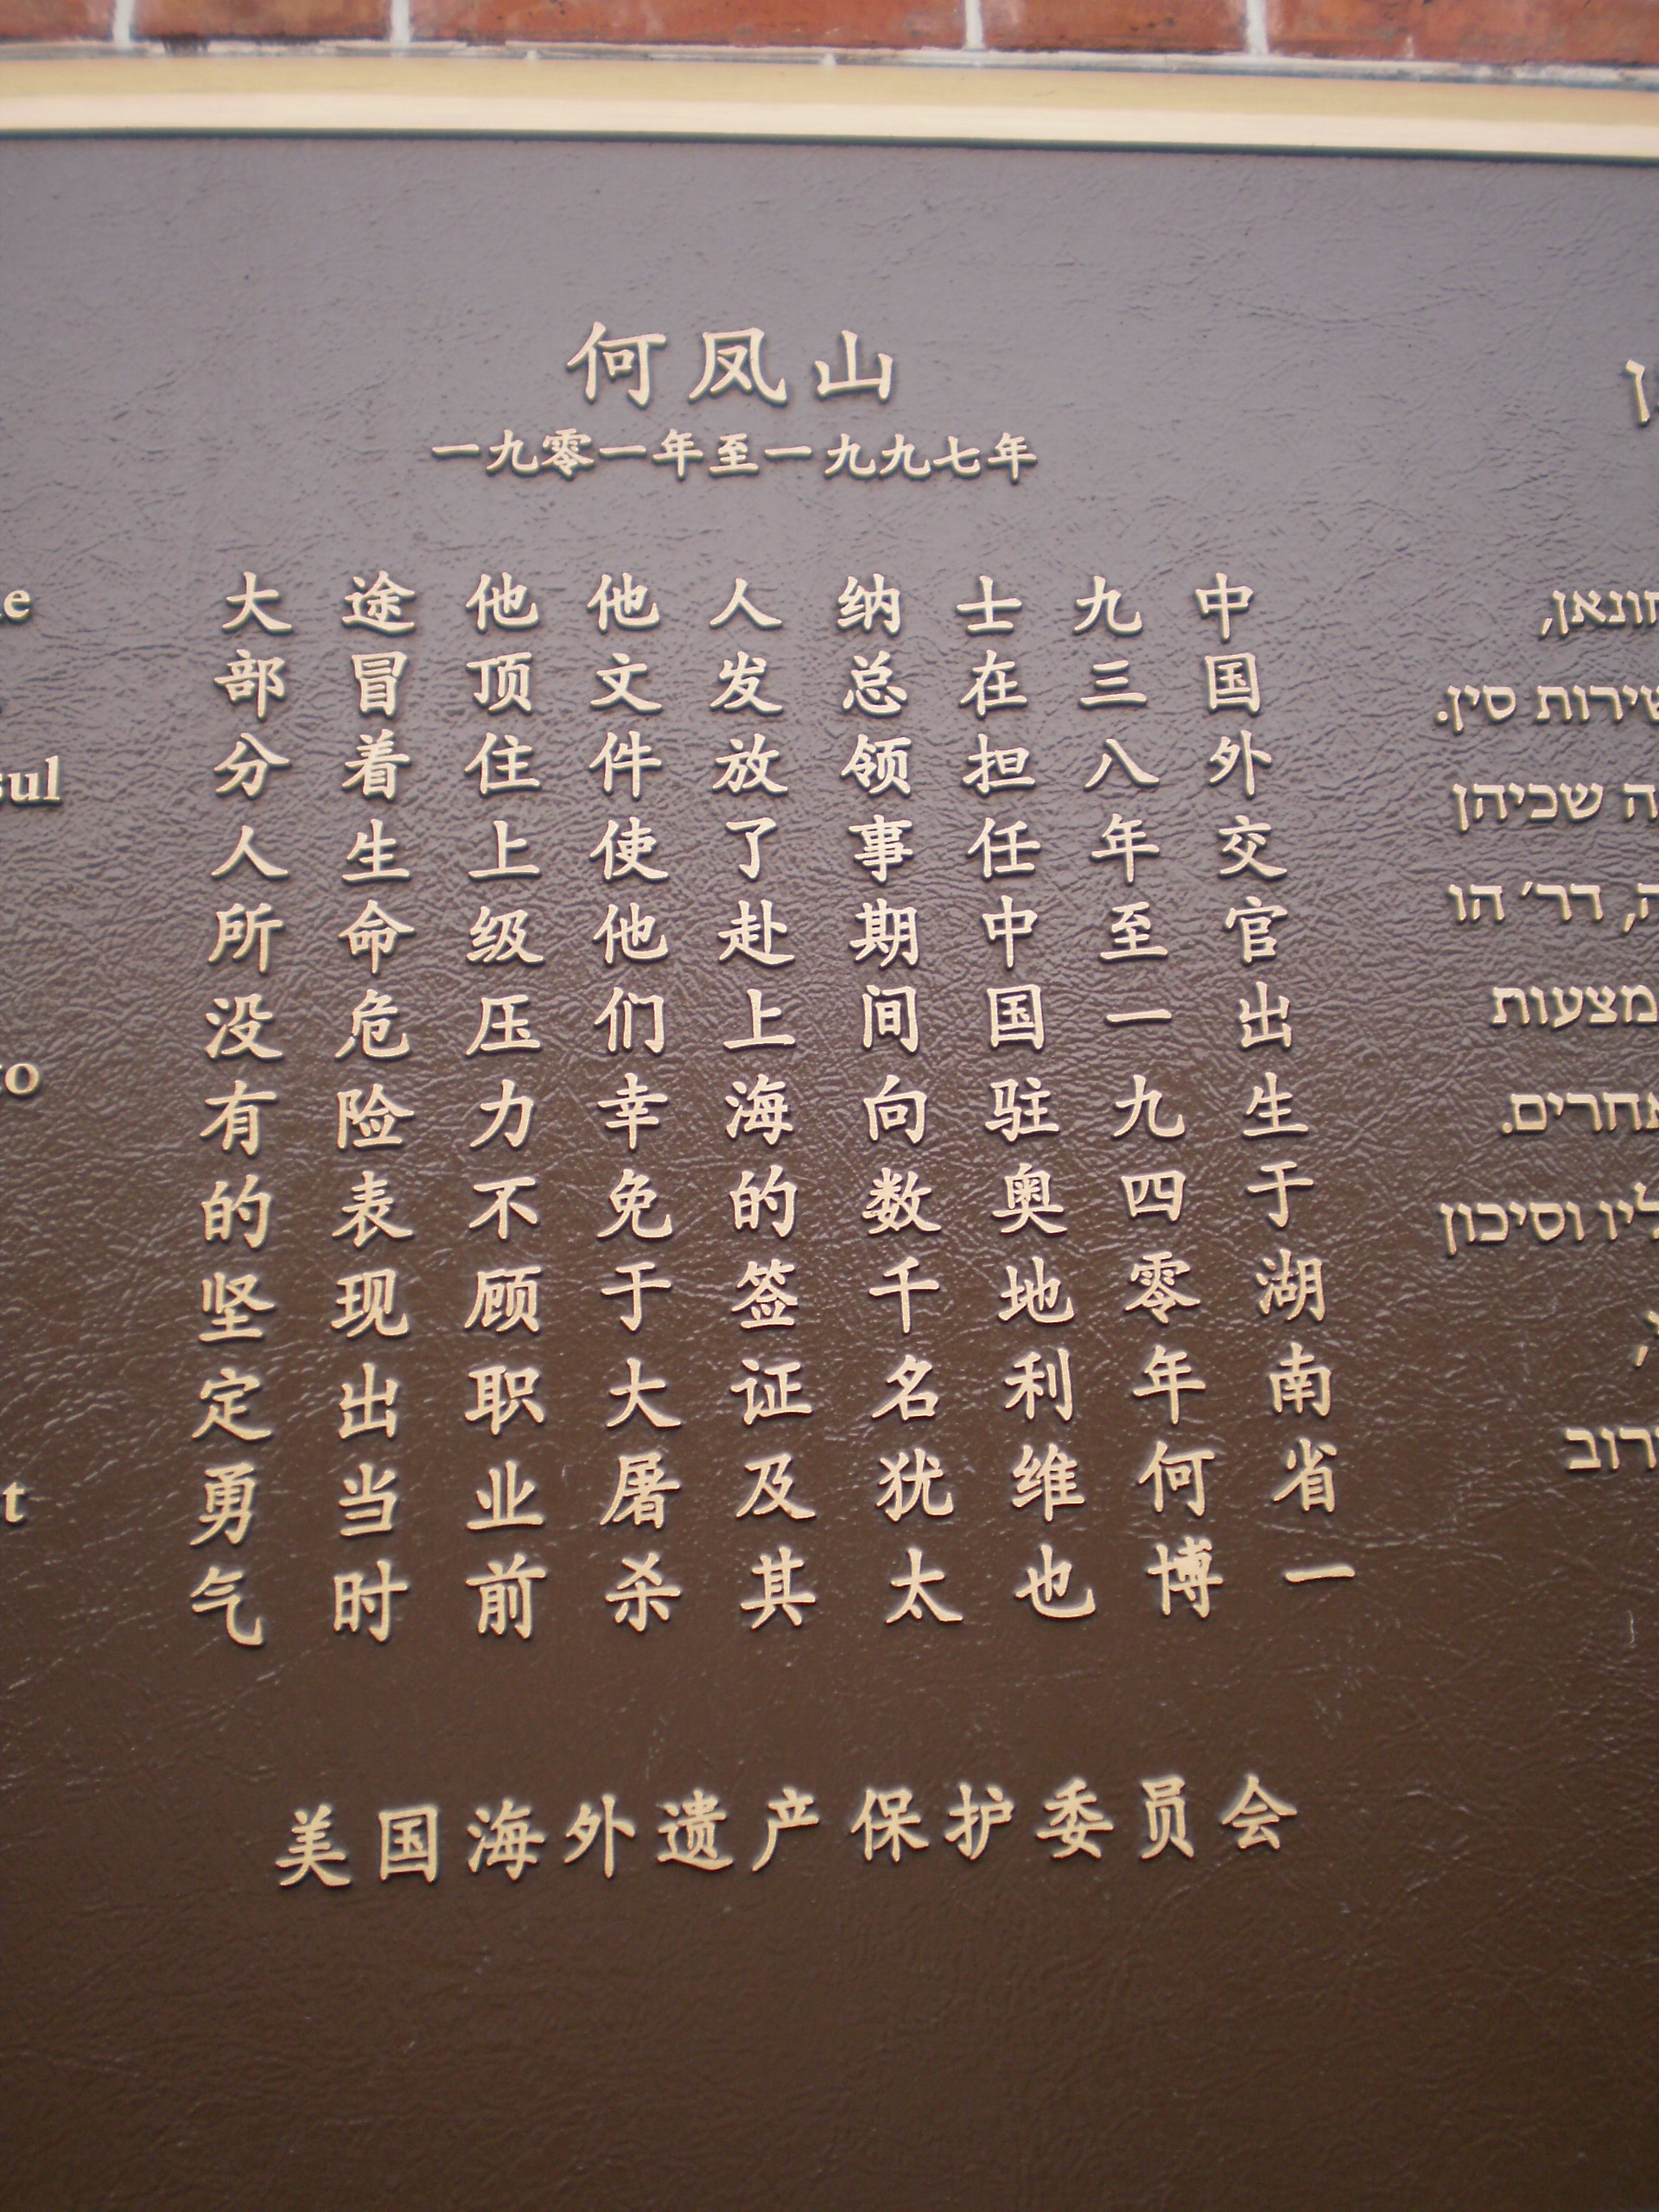 何凤山
一九零一年至一九九七年
中国外交官出生于湖南省一
九三八年至一九四零年何博
士在担任中国驻奥地利维也
纳总领事期间向数千名犹太
人发放了赴上海的签证及其
他文件使他们幸免于大屠杀
他顶住上级压力不顾职业前
途冒着生命危险表现出当时
大部分人所没有的坚定勇气
美国海外遗产保护委员会
sul
t
חונאן,
שירות סין.
ה שכיהן
ה, דר׳ הו
מצעות
אחרים.
ליו וסיכון
רוב